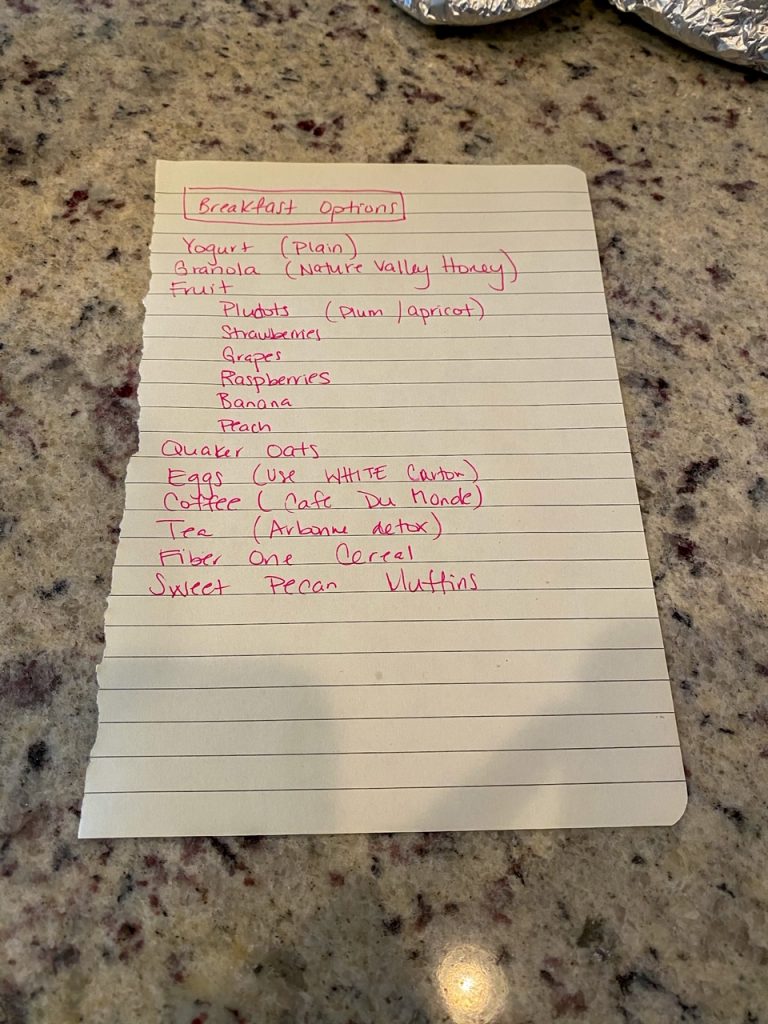 Breakfast Options
Yogurt (Plain)
Granola (Nature Valley Honey)
Fruit
Pluots (plum / apricot)
Strawberries
Grapes
Raspberries
Banana
Peach
Quaker Oats
Eggs (use WHITE Carton)
Coffee (Cafe Du Monde)
Tea (Arbonne detox)
Fiber One Cereal
Sweet Pecan Muffins